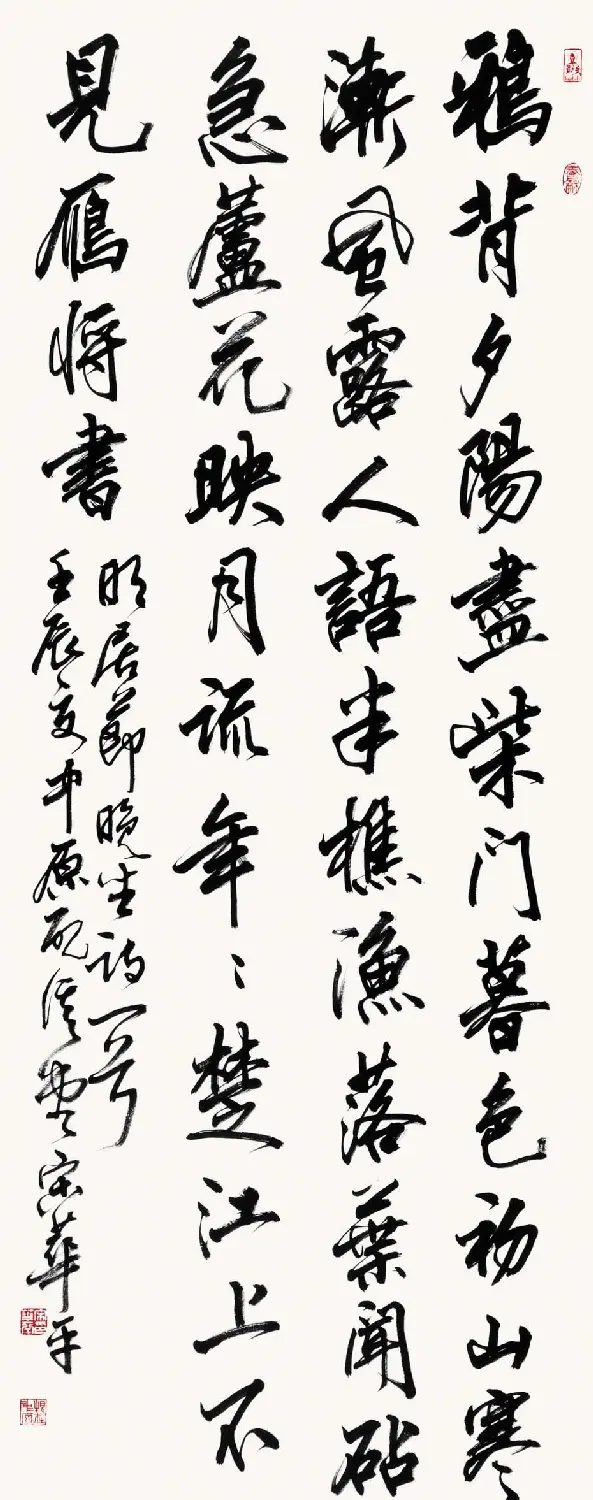 鴉背夕陽盡柴門暮色初山寒
漸風露人語半樵漁落葉聞砧
急蘆花映月疏年々楚江上不
見鴈将書
明居節晚坐詩一首
壬辰夏中原宋華平